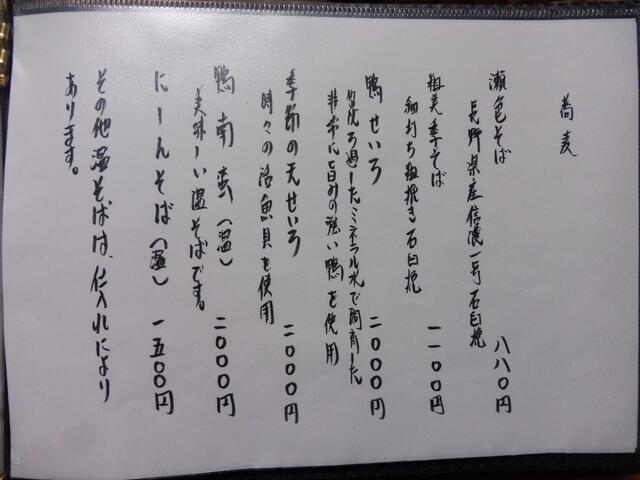 蕎麦
瀬色そば 八八〇円
長野県産信濃一号石臼挽
粗美季そば 一一〇〇円
細打ち粗挽き石臼挽
鴨せいろ 二〇〇〇円
ろ過したミネラル水で飼育した
非常に旨みの強い鴨を使用
季節の天せいろ 二〇〇〇円
時々の活魚貝を使用
鴨南蛮(温) 二〇〇〇円
美味しい温そばです。
にしんそば(温) 一五〇〇円
その他温そばは、仕入れにより
あります。